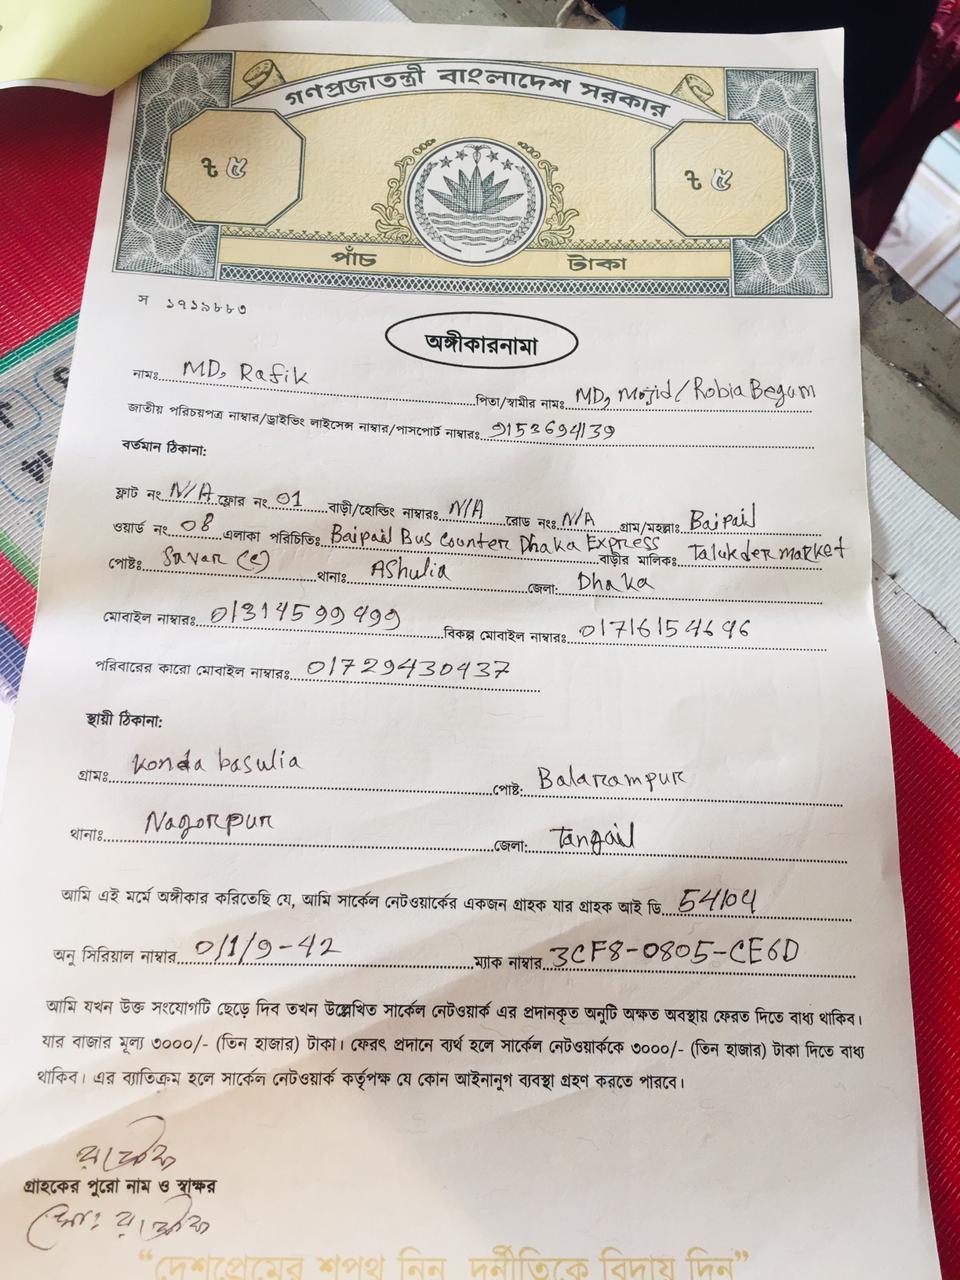 গণপ্রজাতন্ত্রী বাংলাদেশ সরকার
৳ ৫ ৳ ৫
পাঁচ টাকা
স ১৭১৯৮৮৩
অঙ্গীকারনামা
নামঃ MD, Rafik পিতা/স্বামীর নামঃ MD, Mojid/Robia Begum
জাতীয় পরিচয়পত্র নাম্বার/ড্রাইভিং লাইসেন্স নাম্বার/পাসপোর্ট নাম্বারঃ 9152694139
বর্তমান ঠিকানা:
ফ্লাট নং N/A ফ্লোর নং 01 বাড়ী/হোল্ডিং নাম্বারঃ N/A রোড নংঃ N/A গ্রাম/মহল্লাঃ Baipail
ওয়ার্ড নং 08 এলাকা পরিচিতিঃ Baipail Bus Counter Dhaka Express বাড়ীর মালিকঃ Talukder market
পোষ্টঃ Savar (c) থানাঃ AShulia জেলা: Dhaka
মোবাইল নাম্বারঃ 01314599499 বিকল্প মোবাইল নাম্বারঃ 01716154646
পরিবারের কারো মোবাইল নাম্বারঃ 01729430437
স্থায়ী ঠিকানা:
গ্রামঃ Konda basulia পোষ্ট: Balarampur
থানাঃ Nagorpur জেলা: Tangail
আমি এই মর্মে অঙ্গীকার করিতেছি যে, আমি সার্কেল নেটওয়ার্কের একজন গ্রাহক যার গ্রাহক আই ডি 54104
অনু সিরিয়াল নাম্বার 0/1/9-42 ম্যাক নাম্বার 3CF8-0805-CE6D
আমি যখন উক্ত সংযোগটি ছেড়ে দিব তখন উল্লেখিত সার্কেল নেটওয়ার্ক এর প্রদানকৃত অনুটি অক্ষত অবস্থায় ফেরত দিতে বাধ্য থাকিব।
যার বাজার মূল্য ৩০০০/- (তিন হাজার) টাকা। ফেরৎ প্রদানে ব্যর্থ হলে সার্কেল নেটওয়ার্ককে ৩০০০/- (তিন হাজার) টাকা দিতে বাধ্য
থাকিব। এর ব্যাতিক্রম হলে সার্কেল নেটওয়ার্ক কর্তৃপক্ষ যে কোন আইনানুগ ব্যবস্থা গ্রহণ করতে পারবে।
রফিক
গ্রাহকের পুরো নাম ও স্বাক্ষর
মোঃ রফিক
“দেশপ্রেমের শপথ নিন দুর্নীতিকে বিদায় দিন”